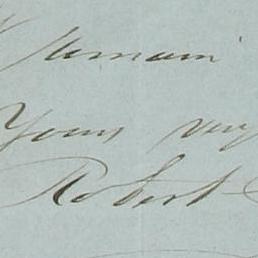 remain
Yours very
Robert